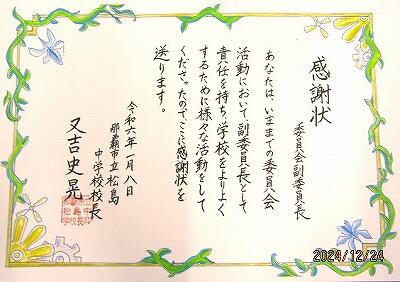 感謝状
委員会副委員長
あなたは、いままでの委員会
活動において、副委員長として
責任を持ち、学校をよりよく
するために様々な活動をして
くださったので、ここに感謝状を
送ります。
令和六年一月八日
那覇市立松島
中学校校長
又吉史晃
2024/12/24